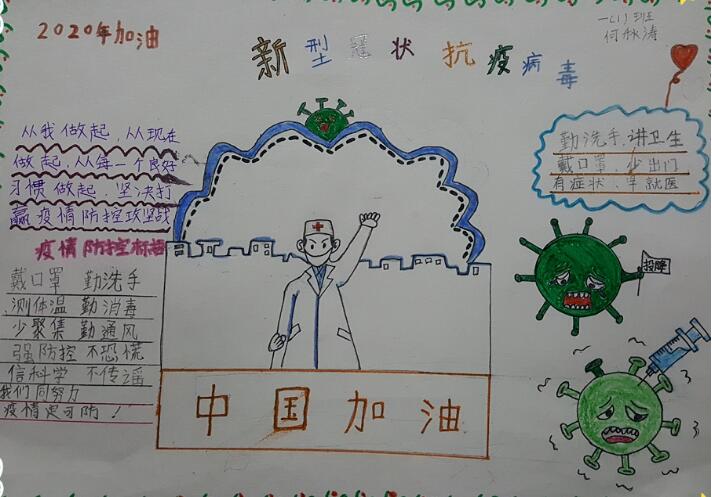 2020年加油
新型冠状抗疫病毒
一(1)班
何秋涛
从我做起，从现在
做起，从每一个良好
习惯做起，坚决打
赢疫情防控攻坚战
疫情防控标语
戴口罩 勤洗手
测体温 勤消毒
少聚集 勤通风
强防控 不恐慌
信科学 不传谣
我们同努力
疫情定可防！
勤洗手，讲卫生
戴口罩，少出门
有症状，早就医
投降
中国加油